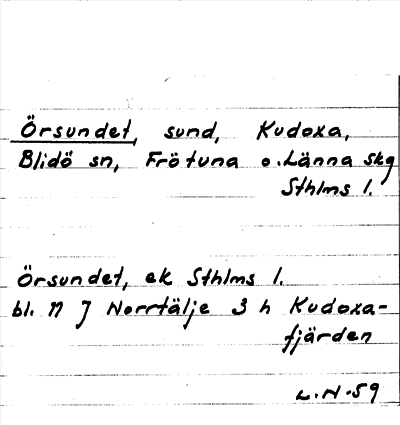 Örsundet, sund, Kudoxa,
Blidö sn, Frötuna o. Länna skg
Sthlms l.
Örsundet, ek Sthlms l.
bl. 11 J Norrtälje 3 h Kudoxa-
fjärden
L.N.59